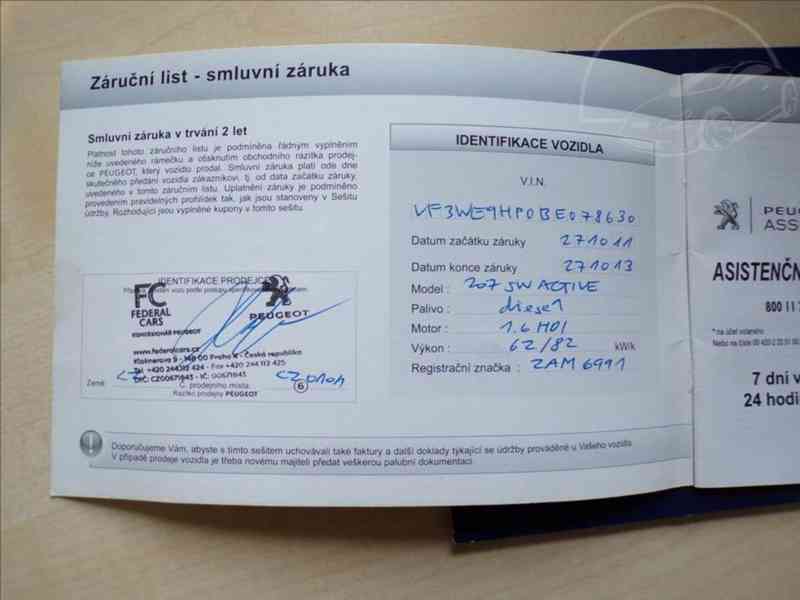 Záruční list - smluvní záruka
Smluvní záruka v trvání 2 let
Platnost tohoto záručního listu je podmíněna řádným vyplněním
níže uvedeného rámečku a otisknutím obchodního razítka prodej-
ce PEUGEOT, který vozidlo prodal. Smluvní záruka platí ode dne
skutečného předání vozidla zákazníkovi, tj. od data začátku záruky,
uvedeného v tomto záručním listu. Uplatnění záruky je podmíněno
provedením pravidelných prohlídek tak, jak jsou stanoveny v Sešitu
údržby. Rozhodující jsou vyplněné kupony v tomto sešitu.
IDENTIFIKACE PRODEJCE
FC
FEDERAL
CARS
KONCESIONÁŘ PEUGEOT
PEUGEOT
www.federalcars.cz
140 00 Praha 4 - Česká republika
Tel. +420 244 113 424 - Fax +420 244 113 425
DIČ: CZ00671843 - IČ: 00671843
Země: CZ
Č. prodejního místa.
6
Razítko prodejny PEUGEOT
IDENTIFIKACE VOZIDLA
V.I.N.
VF3WE9HP0BE078630
Datum začátku záruky 271011
Datum konce záruky 271013
Model : 207 SW ACTIVE
Palivo : diesel
Motor : 1.6 HDI
Výkon : 62/82 kW/k
Registrační značka : 2AM 6991
Doporučujeme Vám, abyste s tímto sešitem uchovávali také faktury a další doklady týkající se údržby prováděné u Vašeho vozidla.
V případě prodeje vozidla je třeba novému majiteli předat veškerou palubní dokumentaci.
PEUG
ASS
ASISTENČN
800 11
* na účet volaného
7 dní v
24 hodi